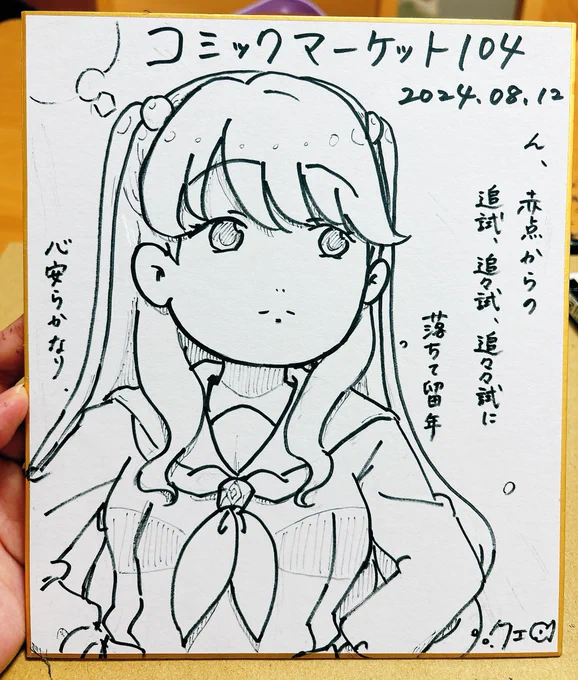 コミックマーケット104
2024.08.12
ん、赤点からの
追試、追々試、追々々試に
落ちて留年
心安らかなり.